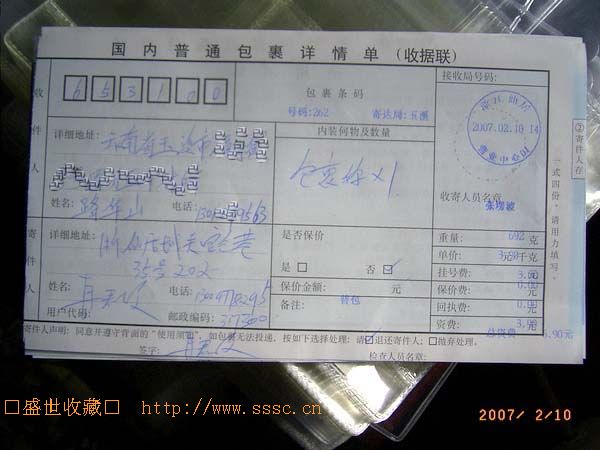 国内普通包裹详情单（收据联）
接收局号码：
653100
包裹条码
号码:262 寄达局:玉溪
浙江仙居
2007.02.10 14
营业中心
②寄件人存
一式四份，请用力填写。
收件人
详细地址：云南省玉溪市
内装何物及数量
包裹 ×1
姓名： 华山 电话：
收寄人员名章
寄件人
详细地址：浙 仙居
35号202
是否保价
□是 否☑
重量：692克
单价：3.60元千克
挂号费：3.00元
姓名： 电话：
保价金额： 元
保价费：0.00元
用户代码： 邮政编码：317300
备注：
回执费：0.00元
资费：3.90元
总资费 6.90元
寄件人声明：同意并遵守背面的“使用须知”，如包裹无法投递，按如下选择处理：请☑退还寄件人；□抛弃处理。
签字：
检查人员名章：
□盛世收藏□ http://www.sssc.cn
2007/ 2/10